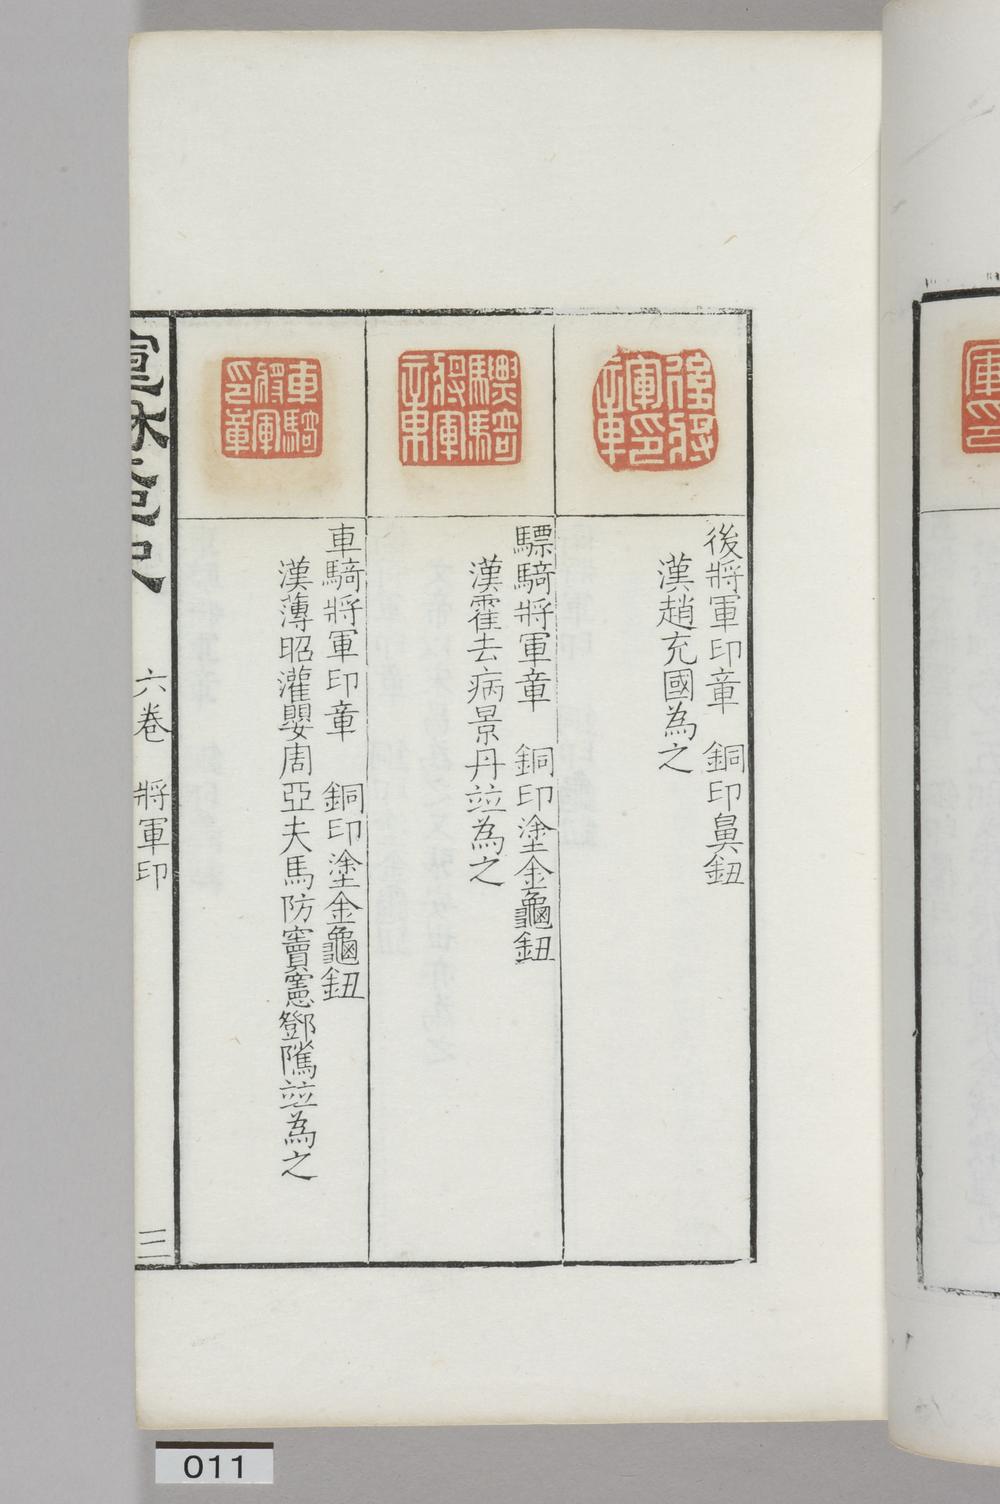 後將軍印章
後將軍印章　銅印鼻鈕
漢趙充國為之
驃騎將軍章
驃騎將軍章　銅印塗金龜鈕
漢霍去病景丹竝為之
車騎將軍印章
車騎將軍印章　銅印塗金龜鈕
漢薄昭灌嬰周亞夫馬防竇憲鄧隲竝為之
宣龢印史　六卷　將軍印　三
軍印
011